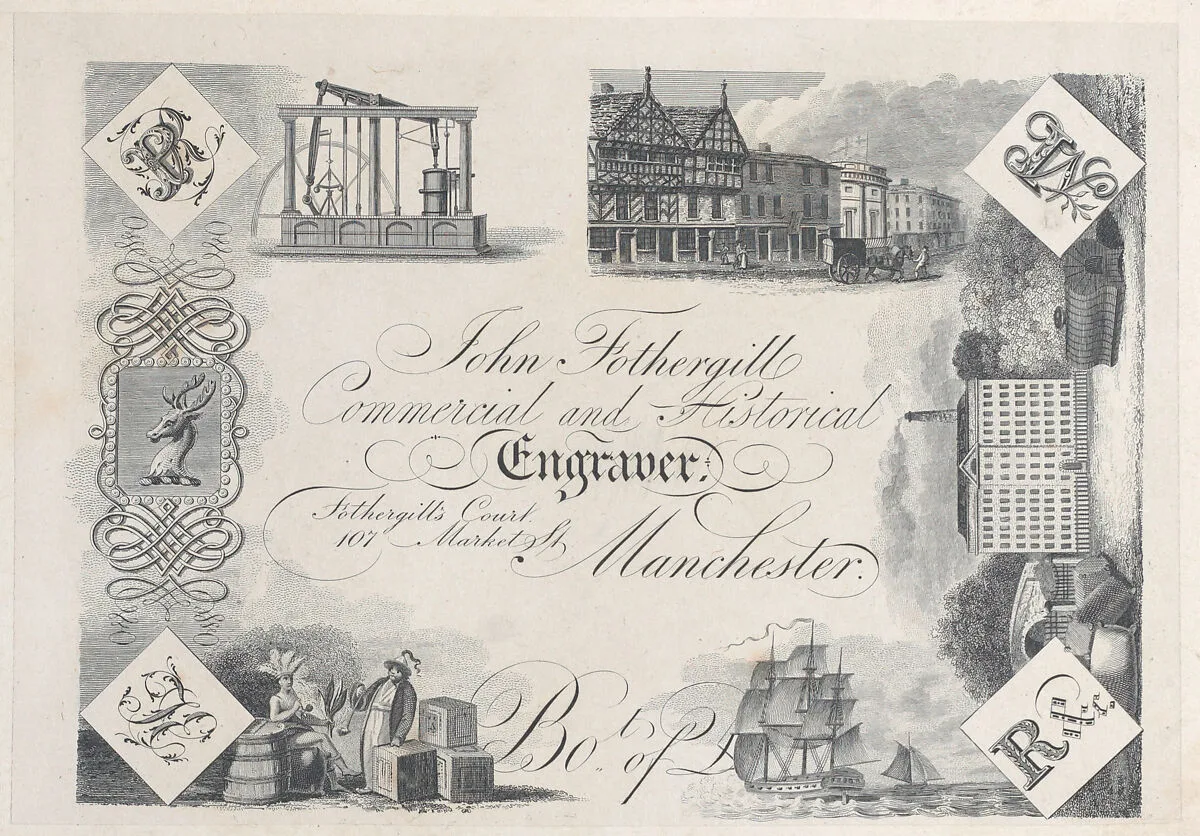 John Fothergill
Commercial and Historical
Engraver.
Fothergill's Court.
107 Market St.
Manchester.
Bo.t of